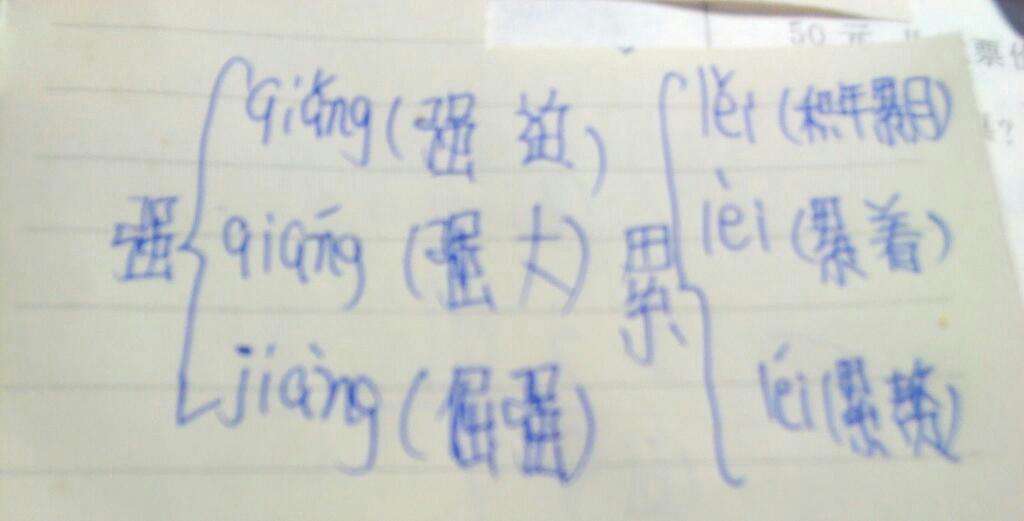 强
qiǎng(强迫)
qiáng(强大)
jiàng(倔强)
累
lěi(积年累月)
lèi(累着)
léi(累赘)
50元
票价